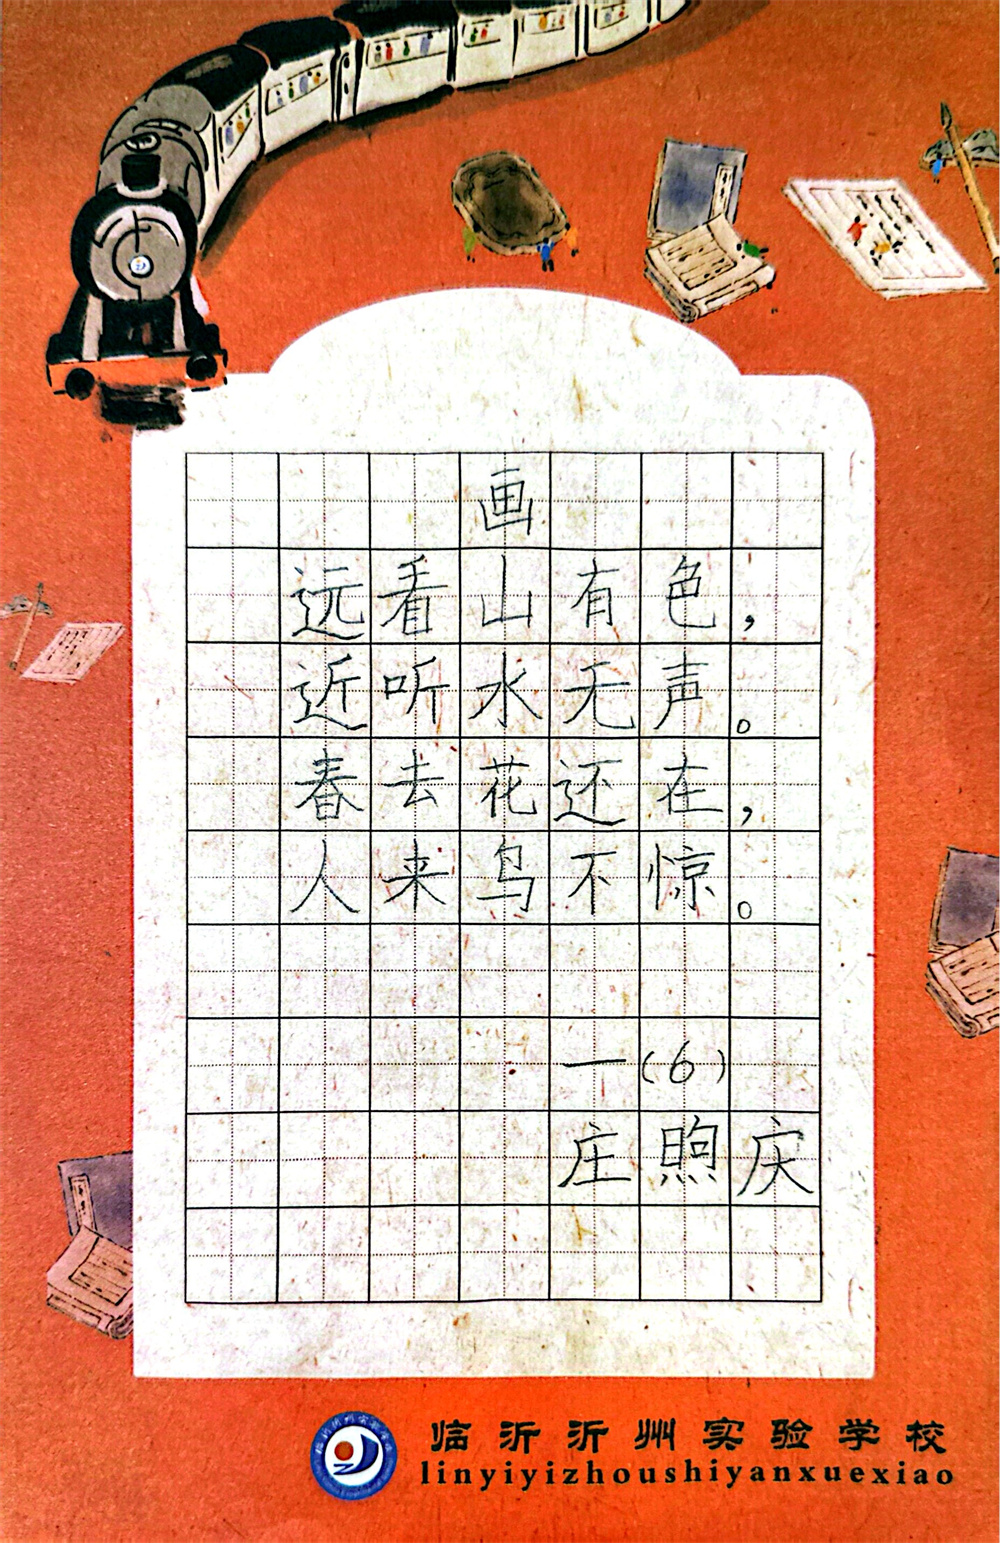 画
远看山有色，
近听水无声。
春去花还在，
人来鸟不惊。
一(6)
庄煦庆
临沂沂州实验学校
linyiyizhoushiyanxuexiao